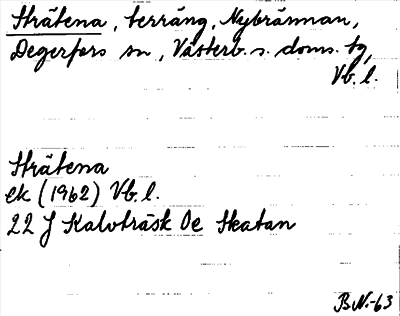 Strätena, terräng, Nybrännan,
Degerfors sn, Västerb. s. doms. tg,
Vb. l.
Strätena
ek (1962) Vb. l.
22 J Kalvträsk 0e Skatan
B.N.-63